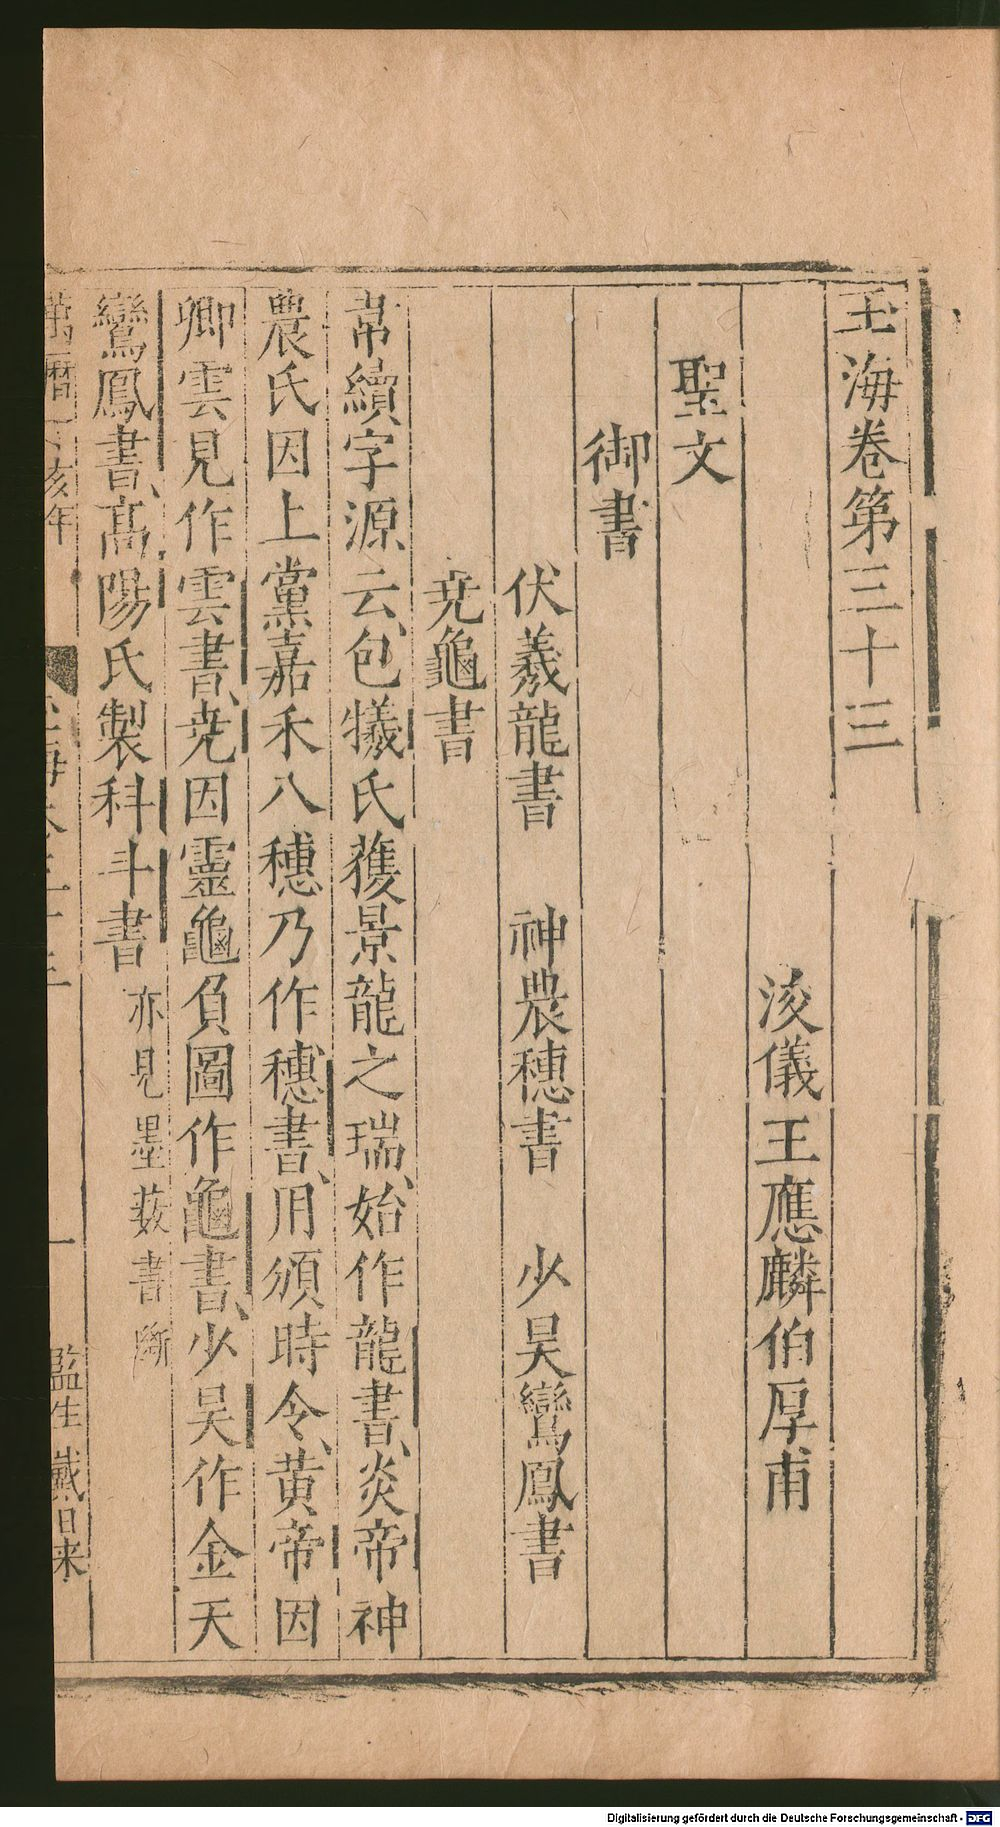 玉海卷第三十三
浚儀王應麟伯厚甫
聖文
御書
伏羲龍書　神農穗書　少昊鸞鳳書
尭龜書
韋續字源云包犧氏獲景龍之瑞始作龍書炎帝神
農氏因上黨嘉禾八穗乃作穗書用頒時令黄帝因
卿雲見作雲書尭因靈龜負圖作龜書少昊作金天
鸞鳳書高陽氏製科斗書亦見墨薮書斷
萬曆 亥年 海 一 監生戴日来
Digitalisierung gefördert durch die Deutsche Forschungsgemeinschaft - DFG